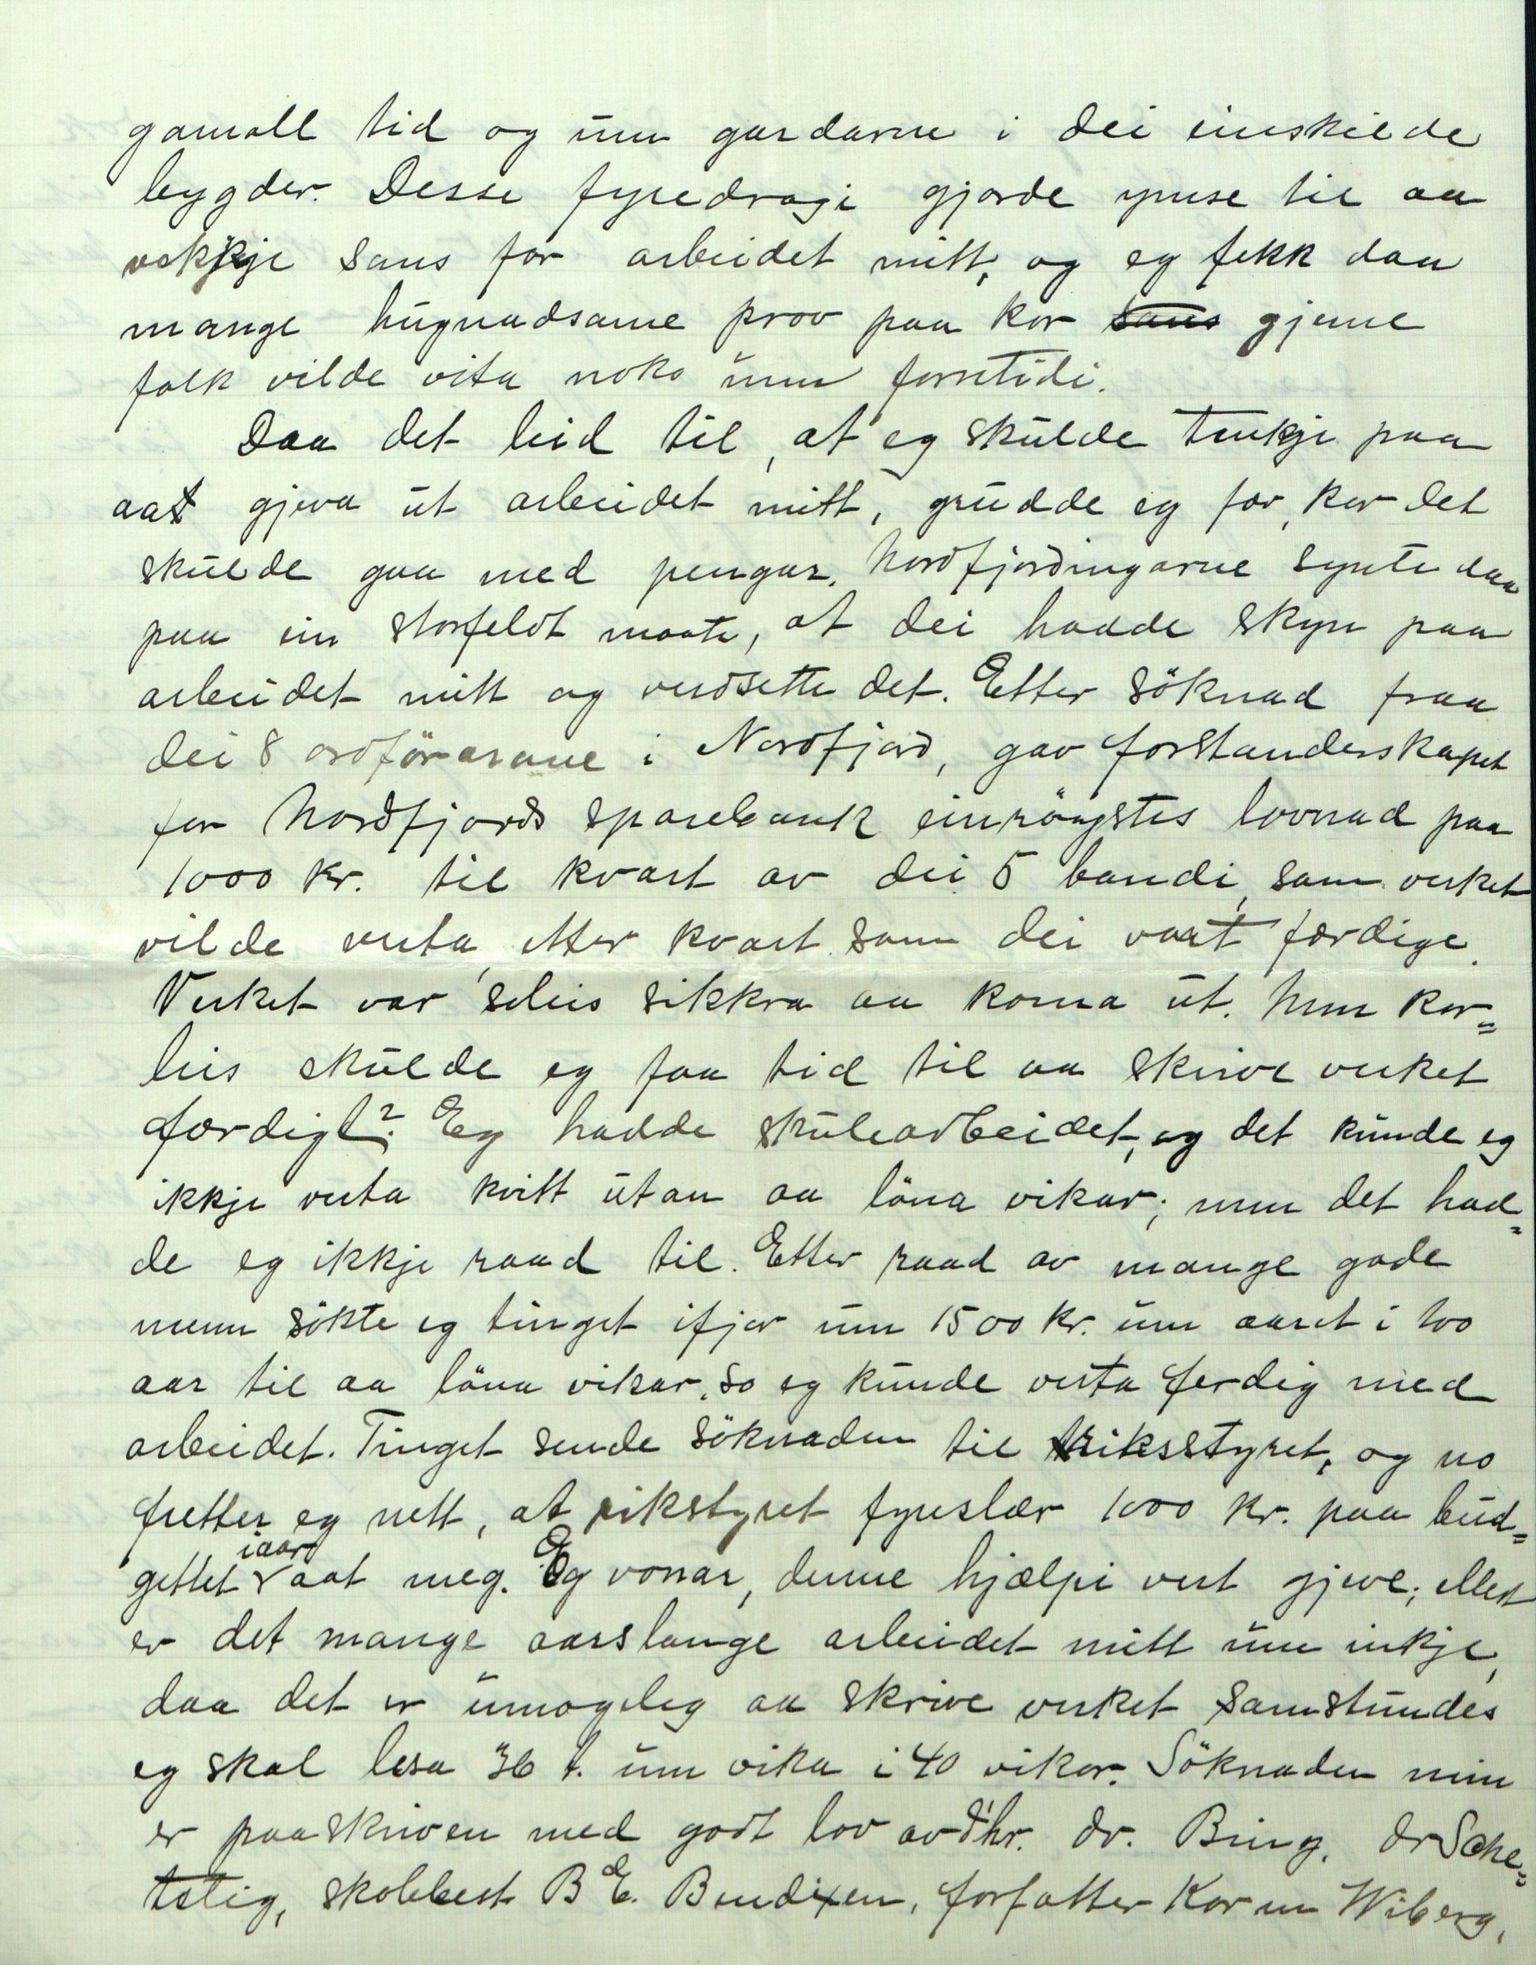 gamall tid og um gardarne i dei einskilde
bygder. Desse fyredragi gjorde ymse til aa
vekkje sans for arbeidet mitt, og eg fekk daa
mange hugnadsame prov paa kor sans gjerne
folk vilde vita noko um forntidi.
Daa det leid til, at eg skulde tenkje paa
aat gjeva ut arbeidet mitt, grudde eg for, kor det
skulde gaa med pengar. Nordfjordingarne synte daa
paa ein storfeldt maate, at dei hadde skyn paa
arbeidet mitt og verdsette det. Etter söknad fraa
dei 8 ordförarane i Nordfjord, gav forstanderskapet
for Nordfjords sparebank einröystes lovnad paa
1000 kr. til kvart av dei 5 bandi, som verket
vilde verta, etter kvart som dei vart færdige.
Verket var soleis sikkra aa koma ut. Men kor=
leis skulde eg faa tid til aa skrive verket
færdigt? Eg hadde skulearbeidet, og det kunde eg
ikkje verta kvitt utan aa löna vikar; men det had=
de eg ikkje raad til. Etter raad av mange gode
menn sökte eg tinget ifjor um 1500 kr. um aaret i two
aar til aa löna vikar, so eg kunde verta ferdig med
arbeidet. Tinget sende söknaden til riksstyret, og no
fretter eg nett, at rikstyret fyreslær 1000 kr. paa bud=
gettet iaar aat meg. Eg vonar, denne hjælpi vert gjeve; elles
er det mange aarslange arbeidet mitt um inkje,
daa det er umogeleg aa skrive verket samstundes
eg skal lesa 36 t. um vika i 40 vikor. Söknaden min
er paaskriven med godt lov av d'hr. dr. Bing, dr Sche=
telig, skolebest. B E. Bendixen, forfatter Kor en Wiberg,